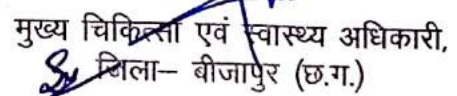 मुख्य चिकित्सा एवं स्वास्थ्य अधिकारी,
जिला– बीजापुर (छ.ग.)